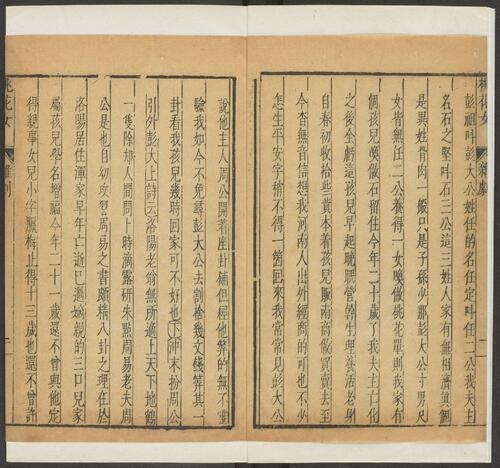 桃花女 雜劇 一
彭祖呌彭大公姓任的名任定呌任二公我夫主
名石之堅呌石三公這三姓人家有無相濟真個
是異姓骨肉一般只是子孫少那彭大公寸男尺
女皆無任二公養得一女喚做桃花單則我家有
個孩兒喚做石留住今年二十歲了我夫主亡化
之後全虧這孩兒早起晚眠營幹生理養活老身
自春初收拾些資本着孩兒販南商做買賣去至
今杳無音信想我河南人出外經商的可也不少
怎生平安字稍不得一箇回來我常常見彭大公
說他主人周公開著座卦鋪但經他算的無不靈
驗我如今不免尋彭大公去割捨幾文錢算其一
卦看我孩兒幾時回家可不好也下冲末扮周公
引外彭大上詩云洛陽老翁無所適上天下地鶴
一隻除却人間問卜時滴露研朱點周易老夫周
公是也自幼攻習周易之書頗精八卦之理在於
洛陽居住渾家早年亡逝已過嫡親的三口兒家
屬孩兒學名增福今年二十一歲還不曾與他定
得親事女兒小字臘梅止得十三歲也還不曾許
桃花女 雜劇 二